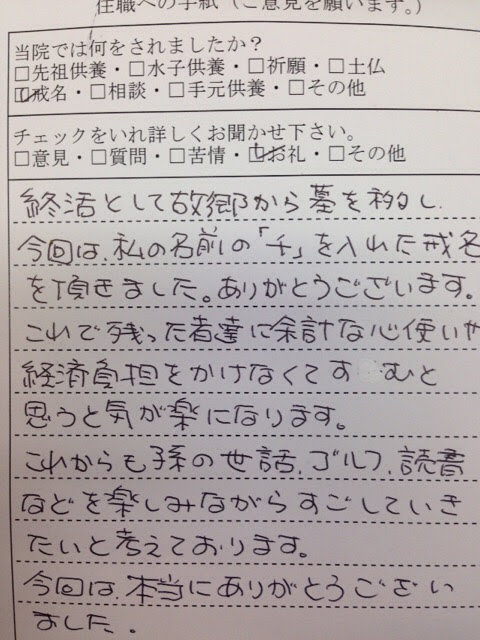 住職への手紙（ご意見を願います。）
当院では何をされましたか？
□先祖供養・□水子供養・□祈願・□土仏
☑戒名・□相談・□手元供養・□その他
チェックをいれ詳しくお聞かせ下さい。
□意見・□質問・□苦情・☑お礼・□その他
終活として故郷から墓を移し、
今回は、私の名前の「千」を入れた戒名
を頂きました。ありがとうございます。
これで残った者達に余計な心使いや
経済負担をかけなくてすむと
思うと気が楽になります。
これからも孫の世話、ゴルフ、読書
などを楽しみながらすごしていき
たいと考えております。
今回は、本当にありがとうござい
ました。